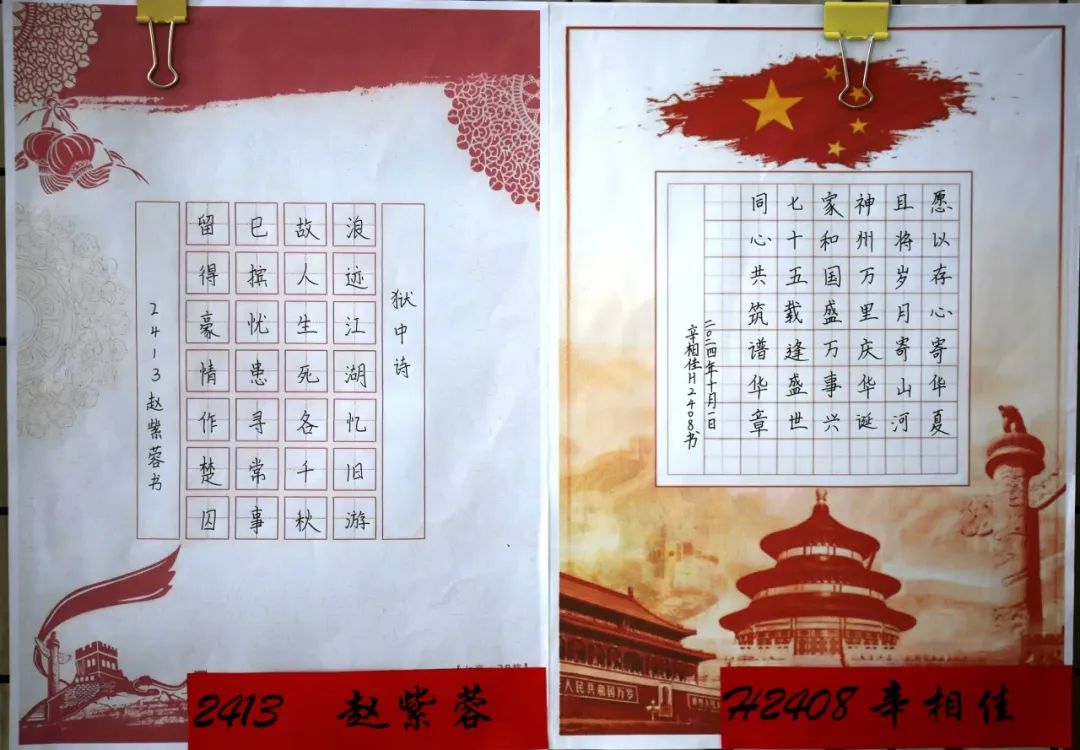 狱中诗
浪迹江湖忆旧游
故人生死各千秋
巴摈忧患寻常事
留得豪情作楚囚
2413赵紫蓉书
2413 赵紫蓉
愿以存心寄华夏
且将岁月寄山河
神州万里庆华诞
家和国盛万事兴
七十五载逢盛世
同心共筑谱华章
二〇二四年十月一日
辛相佳H2408书
人民共和国万岁
H2408 辛相佳